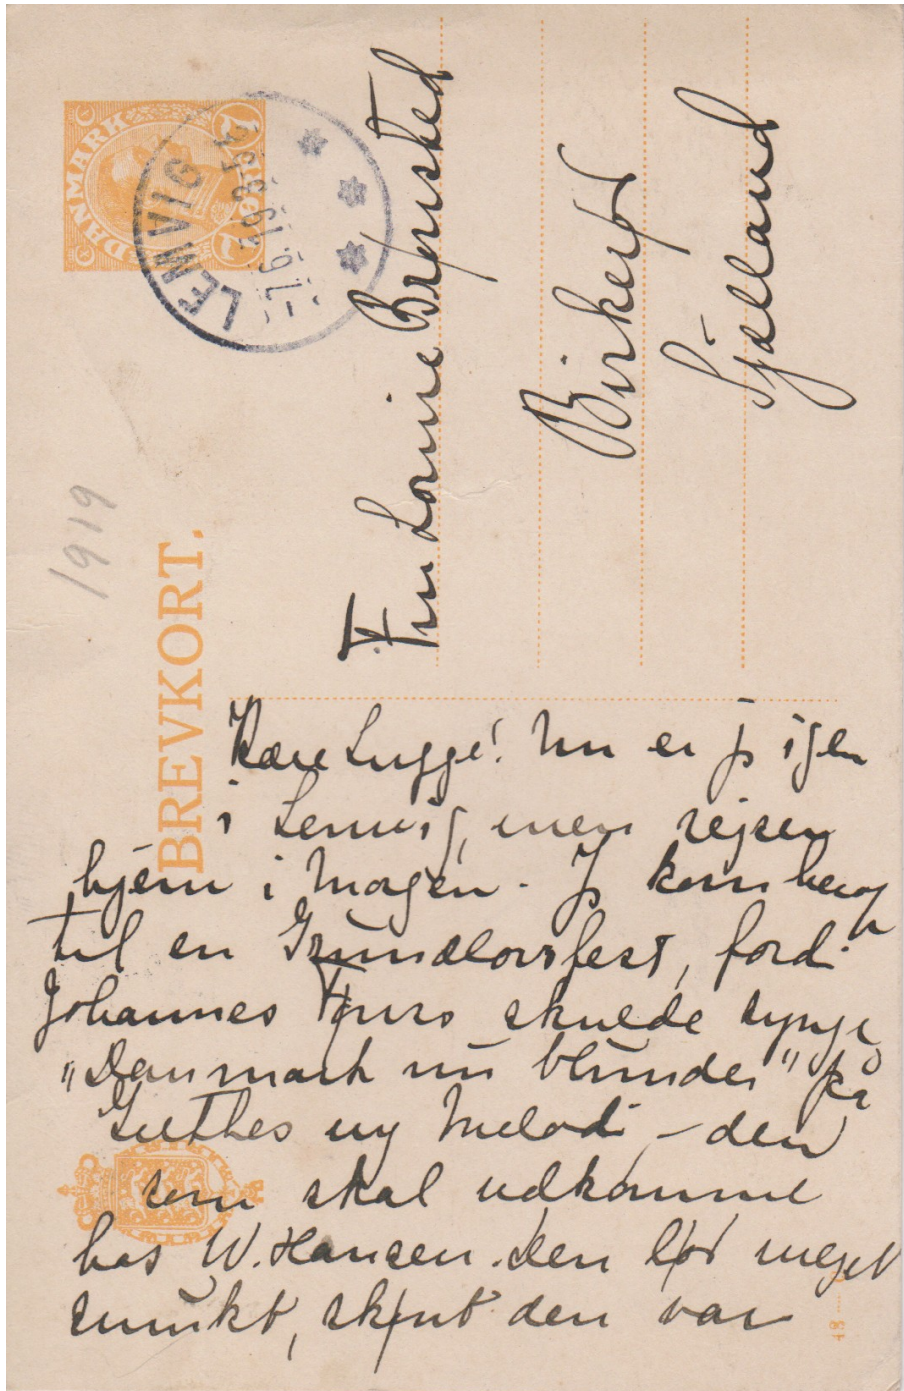 DANMARK
7 ØRE 7
LEMVIG
-7.6.19. 8-9 F
1919
BREVKORT.
Fru Louise Brønsted
Birkerød
Sjælland
Kære Lugge! Nu er jeg igen
i Lemvig, men rejser
hjem i Morgen. Jeg kom herop
til en Grundlovsfest, fordi
Johannes Fønss skulde synge
"Danmark nu blunder" på
Guthes ny Melodi – den
som skal udkomme
hos W. Hansen. Den lød meget
smukt, skønt den var